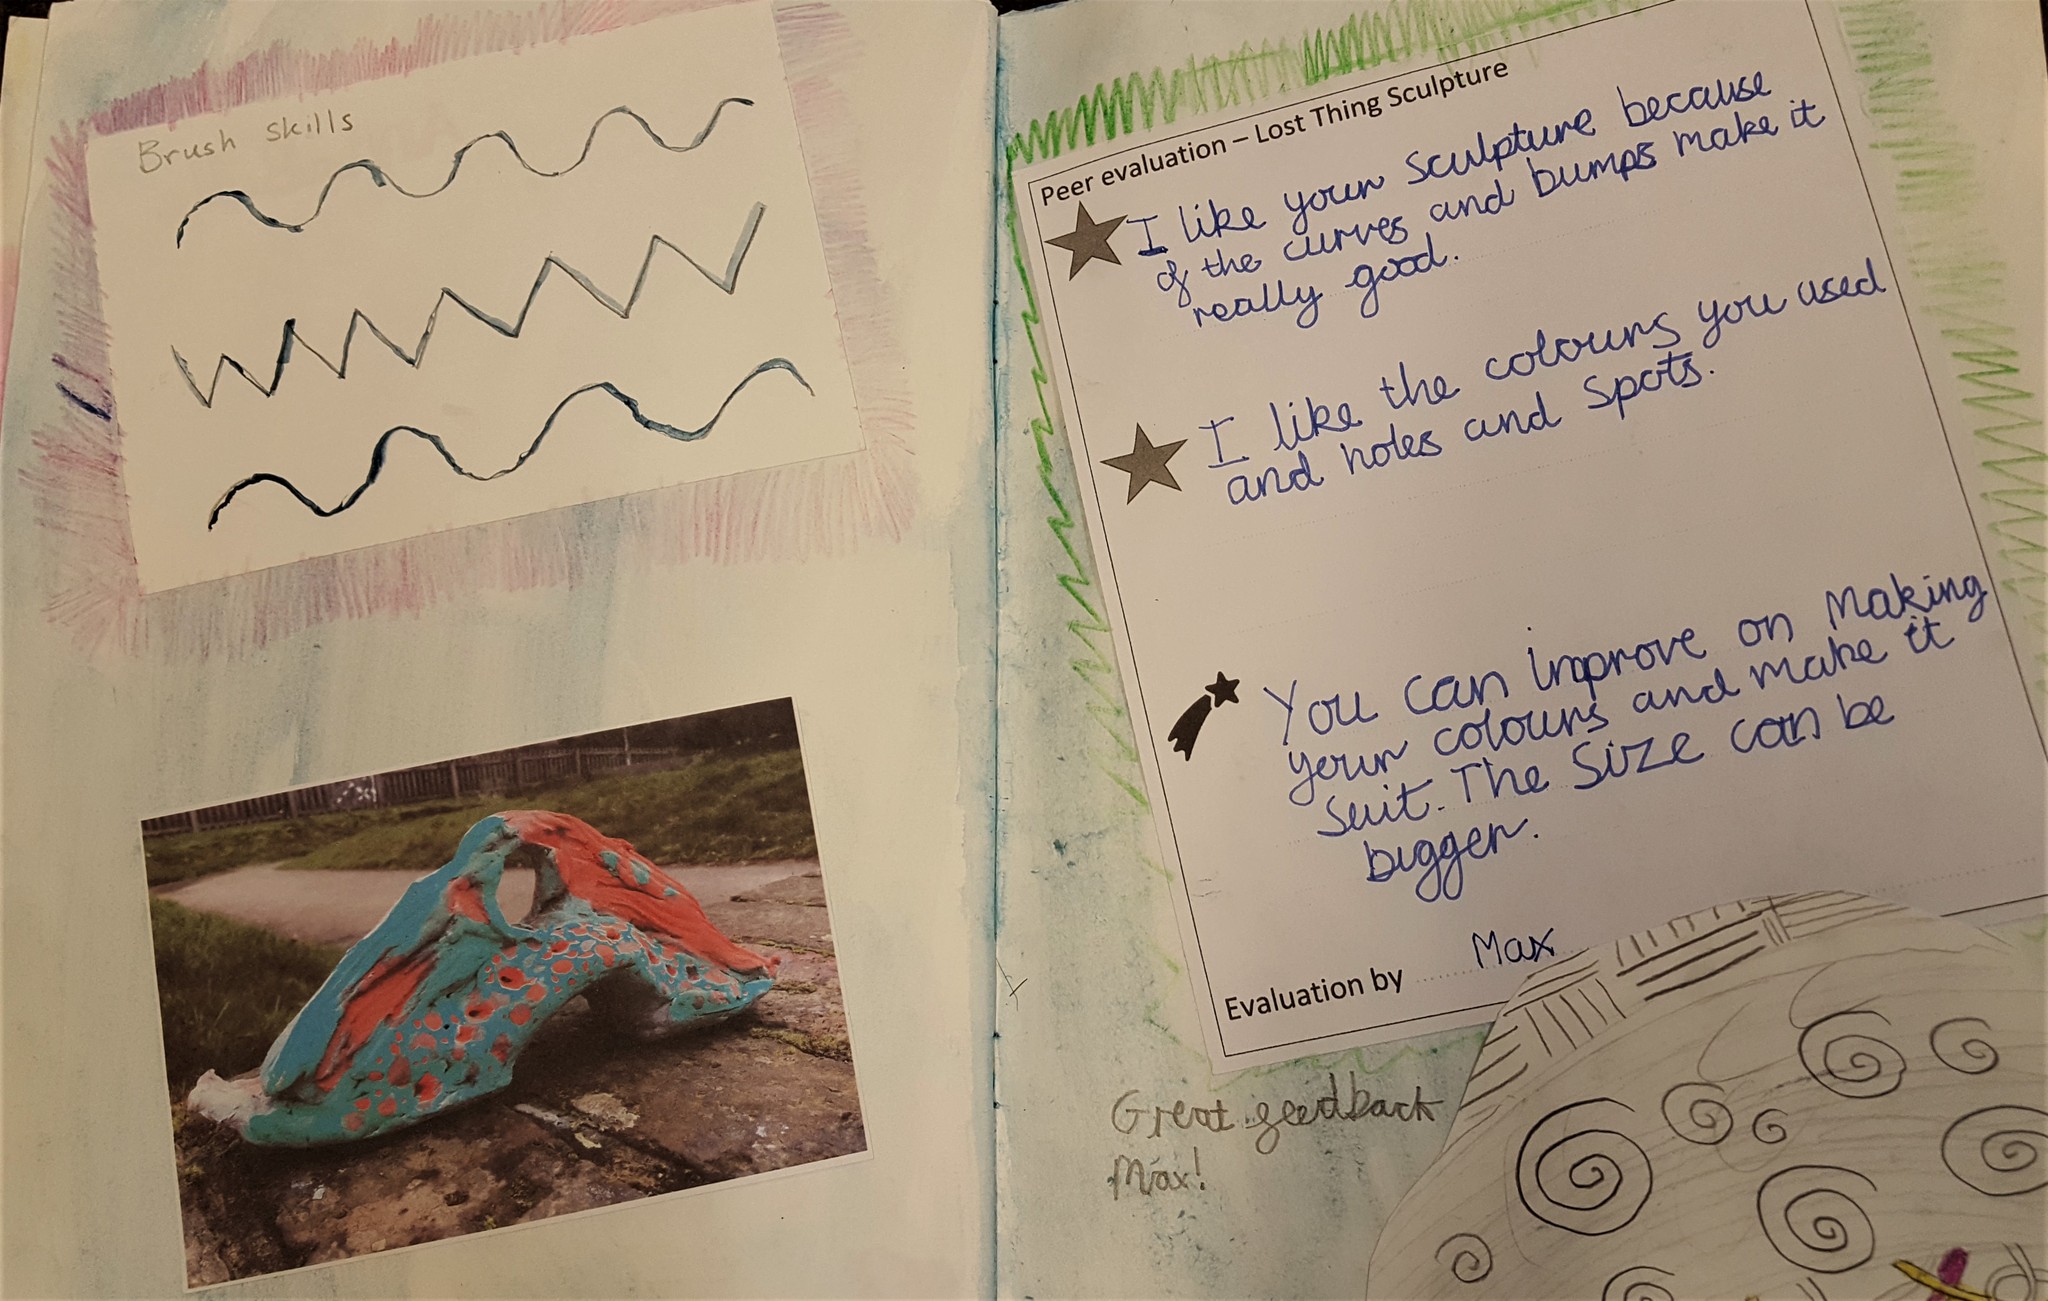 Brush skills
Peer evaluation – Lost Thing Sculpture
I like your sculpture because
of the curves and bumps make it
really good.
I like the colours you used
and holes and spots.
You can improve on making
your colours and make it
suit. The size can be
bigger.
Max
Evaluation by
Great feedback
Max!